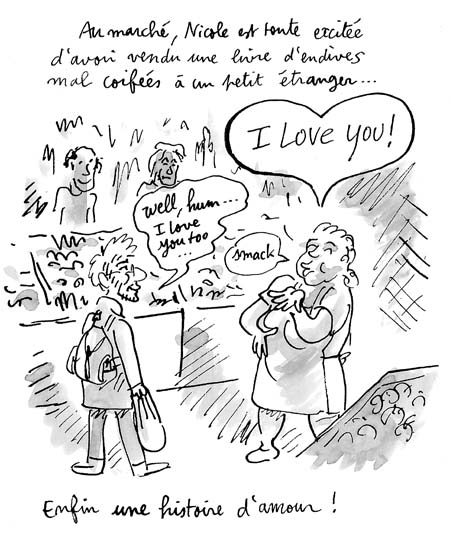 Au marché, Nicole est toute excitée
d'avoir vendu une livre d'endives
mal coifées à un petit étranger...
I LOVE YOU!
Well, hum...
I love
you too
...
smack
Enfin une histoire d'amour !